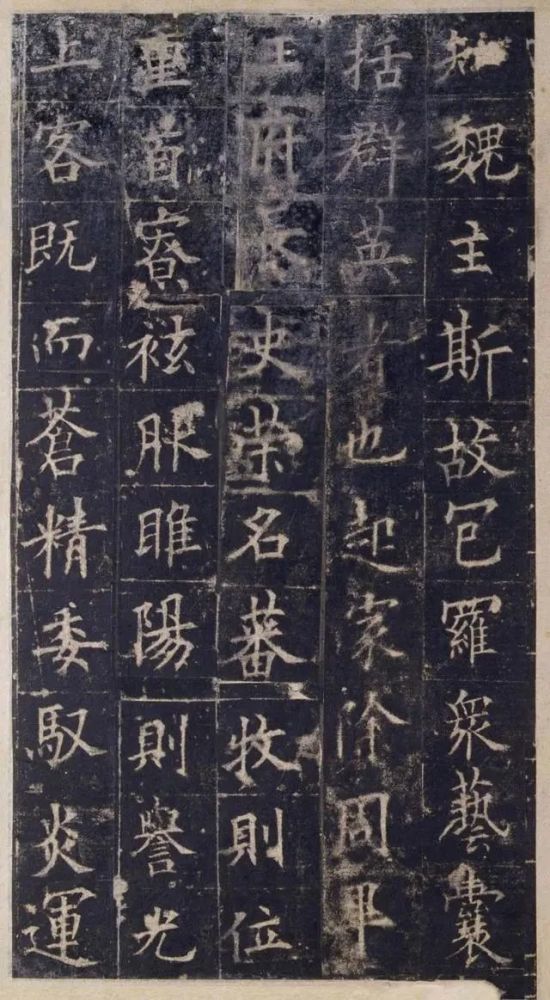 知魏主斯故包羅衆藝囊
括群英者也起家除周
王府長史榮名蕃牧則位
重首寮袨服睢陽則譽光
上客既而蒼精委馭炎運